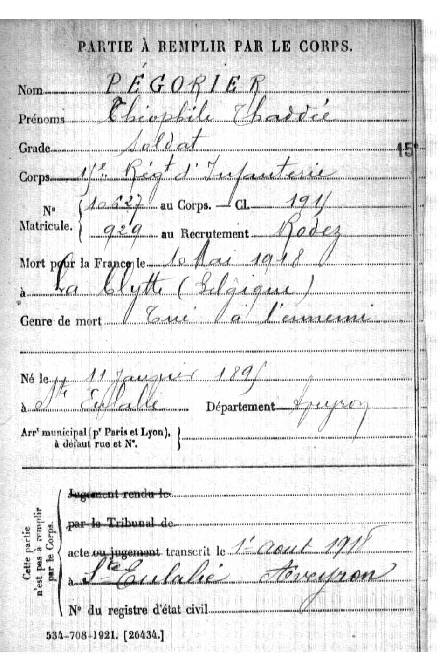 PARTIE À REMPLIR PAR LE CORPS.
Nom PÉGORIER
Prénoms Théophile Thaddée
Grade Soldat
15e
Corps 15e Régt d'Infanterie
N° Matricule. 10527 au Corps. — Cl. 1915
929 au Recrutement Rodez
Mort pour la France le 10 Mai 1918
à La Clytte (Belgique)
Genre de mort Tué à l'ennemi
Né le 11 Janvier 1895
à Ste Eulalie Département Aveyron
Arrt municipal (pr Paris et Lyon),
à défaut rue et N°.
Cette partie n'est pas à remplir par le Corps.
Jugement rendu le
par le Tribunal de
acte ou jugement transcrit le 1er août 1918
à Ste Eulalie Aveyron
N° du registre d'état civil
534-708-1921. [26434.]